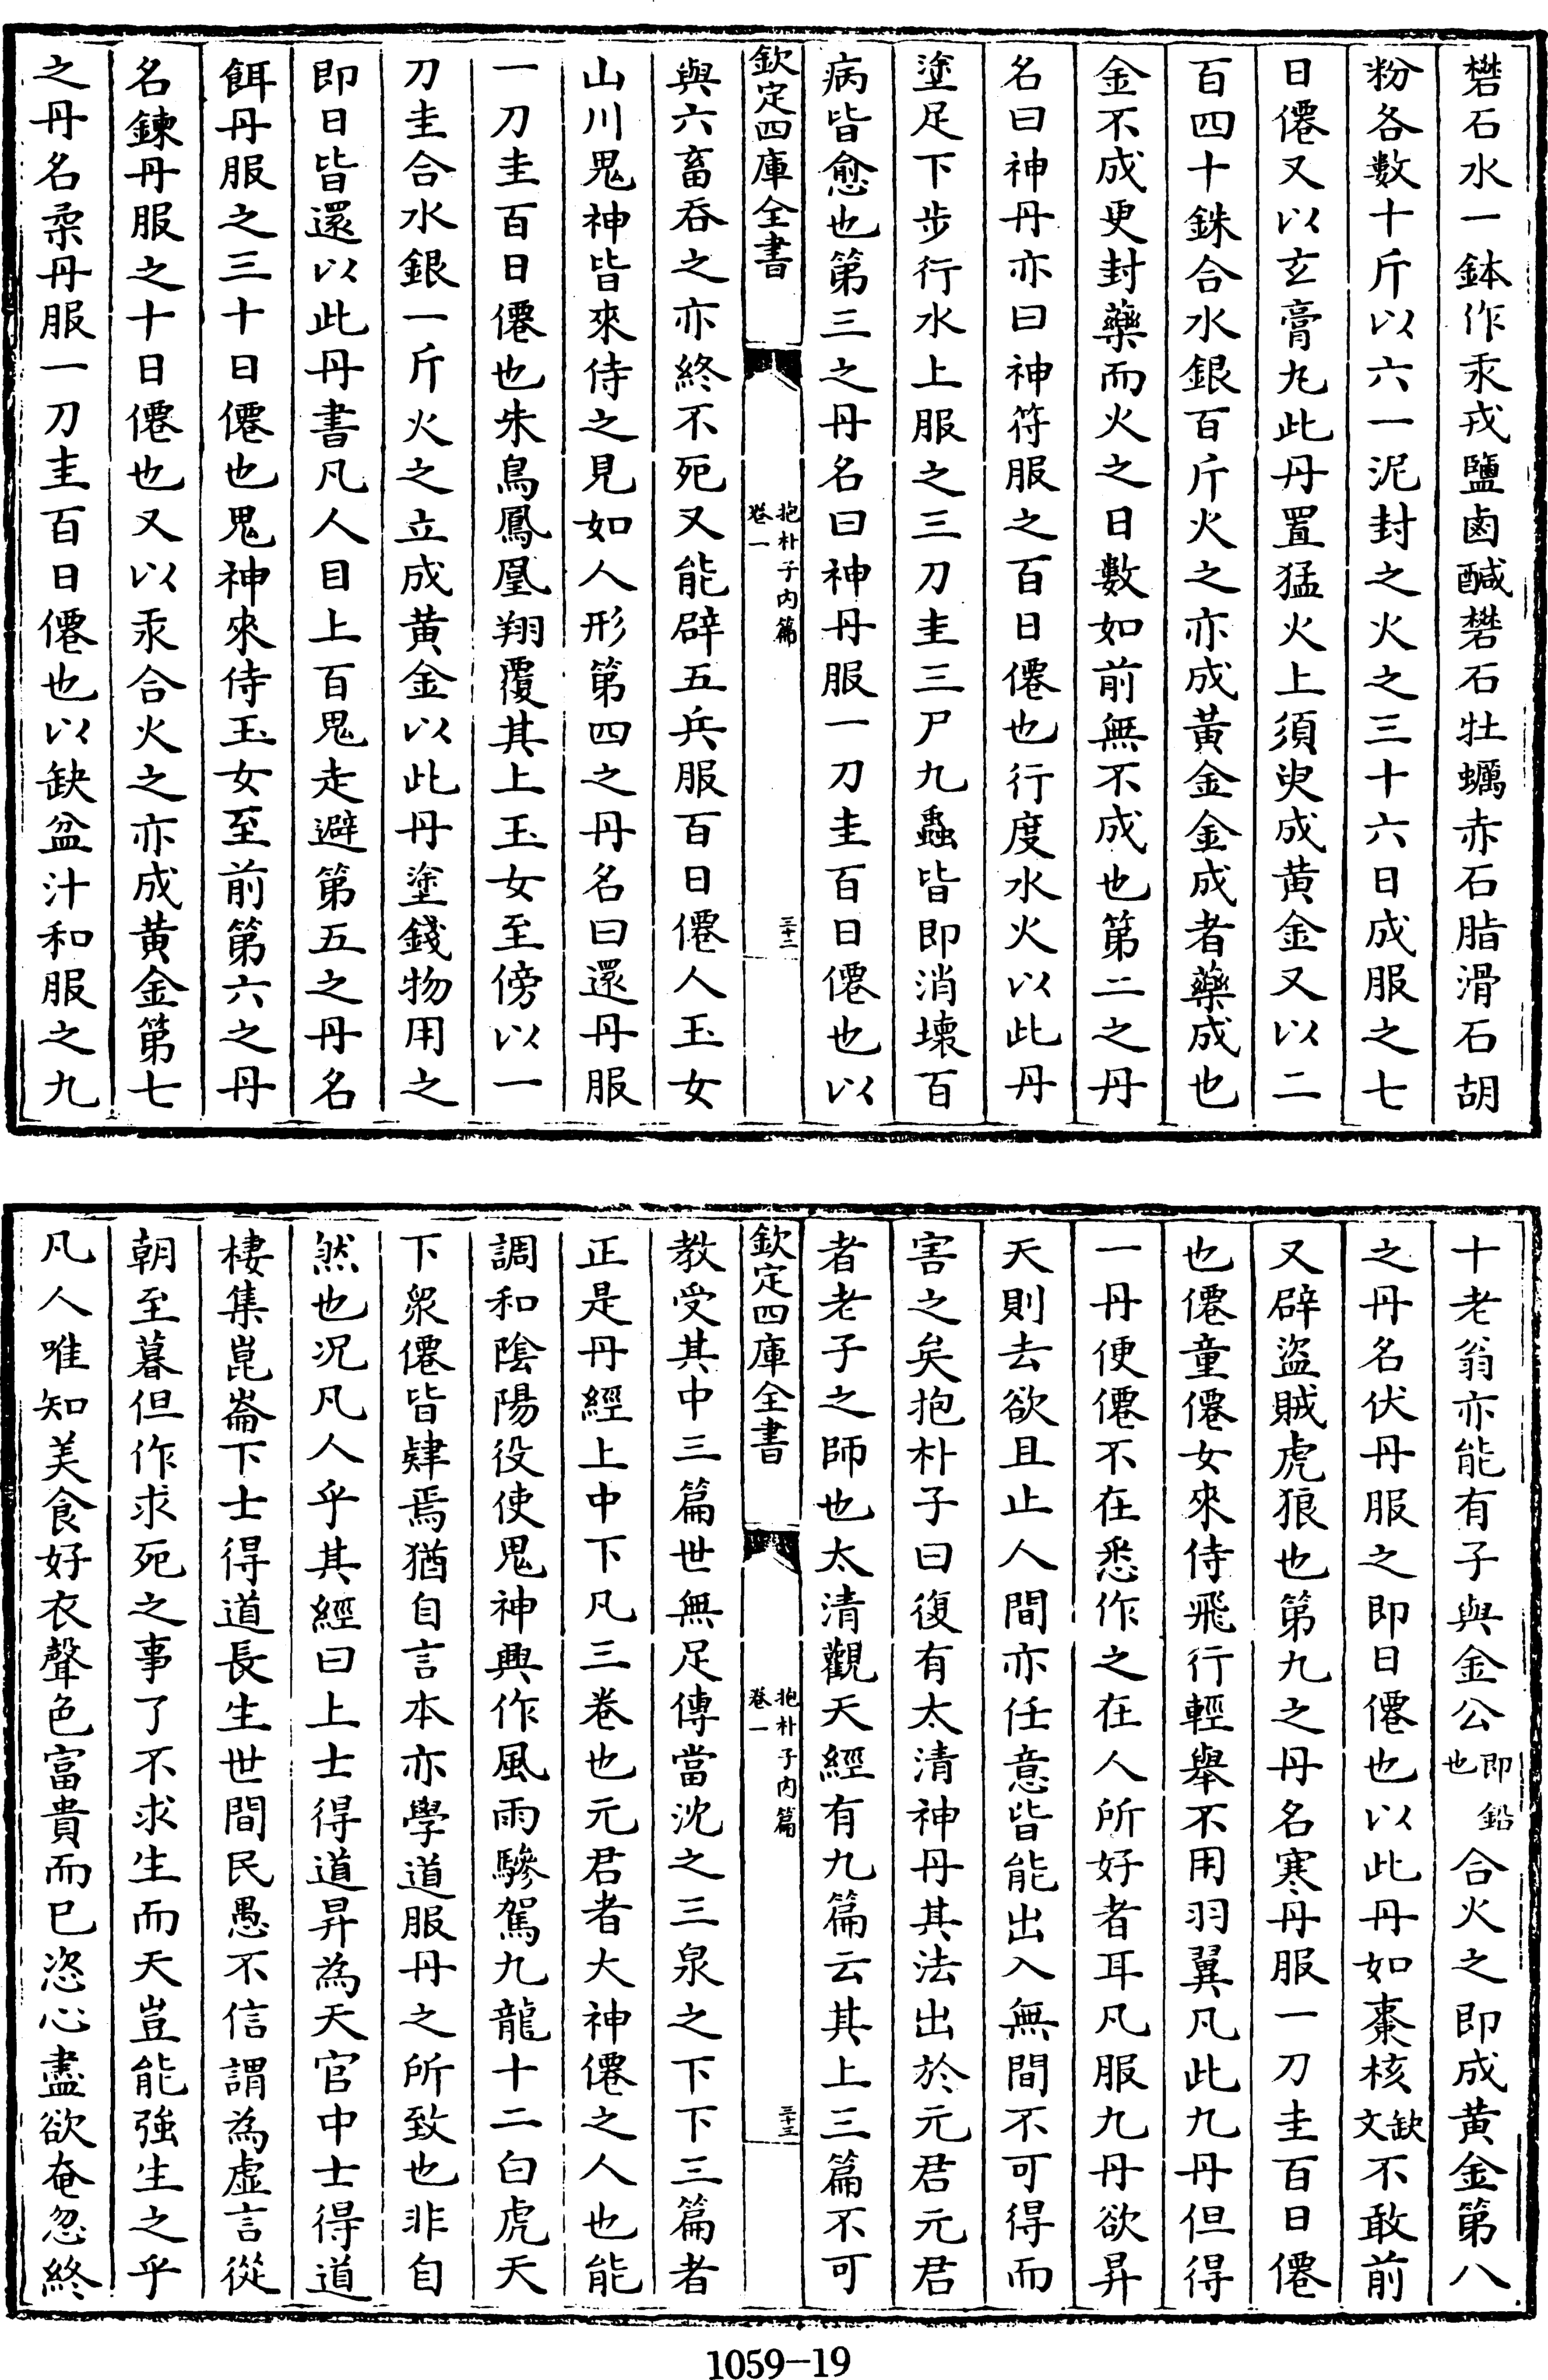 礬石水一鉢作汞戎鹽鹵醎礬石牡蠣赤石脂滑石胡
粉各數十斤以六一泥封之火之三十六日成服之七
日僊又以玄膏丸此丹置猛火上須臾成黄金又以二
百四十銖合水銀百斤火之亦成黃金金成者藥成也
金不成更封藥而火之日數如前無不成也第二之丹
名曰神丹亦曰神符服之百日僊也行度水火以此丹
塗足下步行水上服之三刀圭三尸九蟲皆即消壞百
病皆愈也第三之丹名曰神丹服一刀圭百日僊也以
欽定四庫全書
抱朴子内篇
卷一
三十二
與六畜吞之亦終不死又能辟五兵服百日僊人玉女
山川鬼神皆來侍之見如人形第四之丹名曰還丹服
一刀圭百日僊也朱鳥鳳凰翔覆其上玉女至傍以一
刀圭合水銀一斤火之立成黄金以此丹塗錢物用之
即日皆還以此丹書凡人目上百鬼走避第五之丹名
餌丹服之三十日僊也鬼神來侍玉女至前第六之丹
名鍊丹服之十日僊也又以汞合火之亦成黄金第七
之丹名柔丹服一刀圭百日僊也以缺盆汁和服之九
十老翁亦能有子與金公即鉛也合火之即成黄金第八
之丹名伏丹服之即日僊也以此丹如棗核缺文不敢前
又辟盜賊虎狼也第九之丹名寒丹服一刀圭百日僊
也僊童僊女來侍飛行輕舉不用羽翼凡此九丹但得
一丹便僊不在悉作之在人所好者耳凡服九丹欲昇
天則去欲且止人間亦任意皆能出入無間不可得而
害之矣抱朴子曰復有太清神丹其法出於元君元君
者老子之師也太清觀天經有九篇云其上三篇不可
欽定四庫全書
抱朴子内篇
卷一
三十三
教受其中三篇世無足傳當沈之三泉之下下三篇者
正是丹經上中下凡三卷也元君者大神僊之人也能
調和陰陽役使鬼神興作風雨驂駕九龍十二白虎天
下衆僊皆肄焉猶自言本亦學道服丹之所致也非自
然也况凡人乎其經曰上士得道昇為天官中士得道
棲集崑崙下士得道長生世間民愚不信謂為虛言從
朝至暮但作求死之事了不求生而天豈能強生之乎
凡人唯知美食好衣聲色富貴而已恣心盡欲奄忽終
1059—19